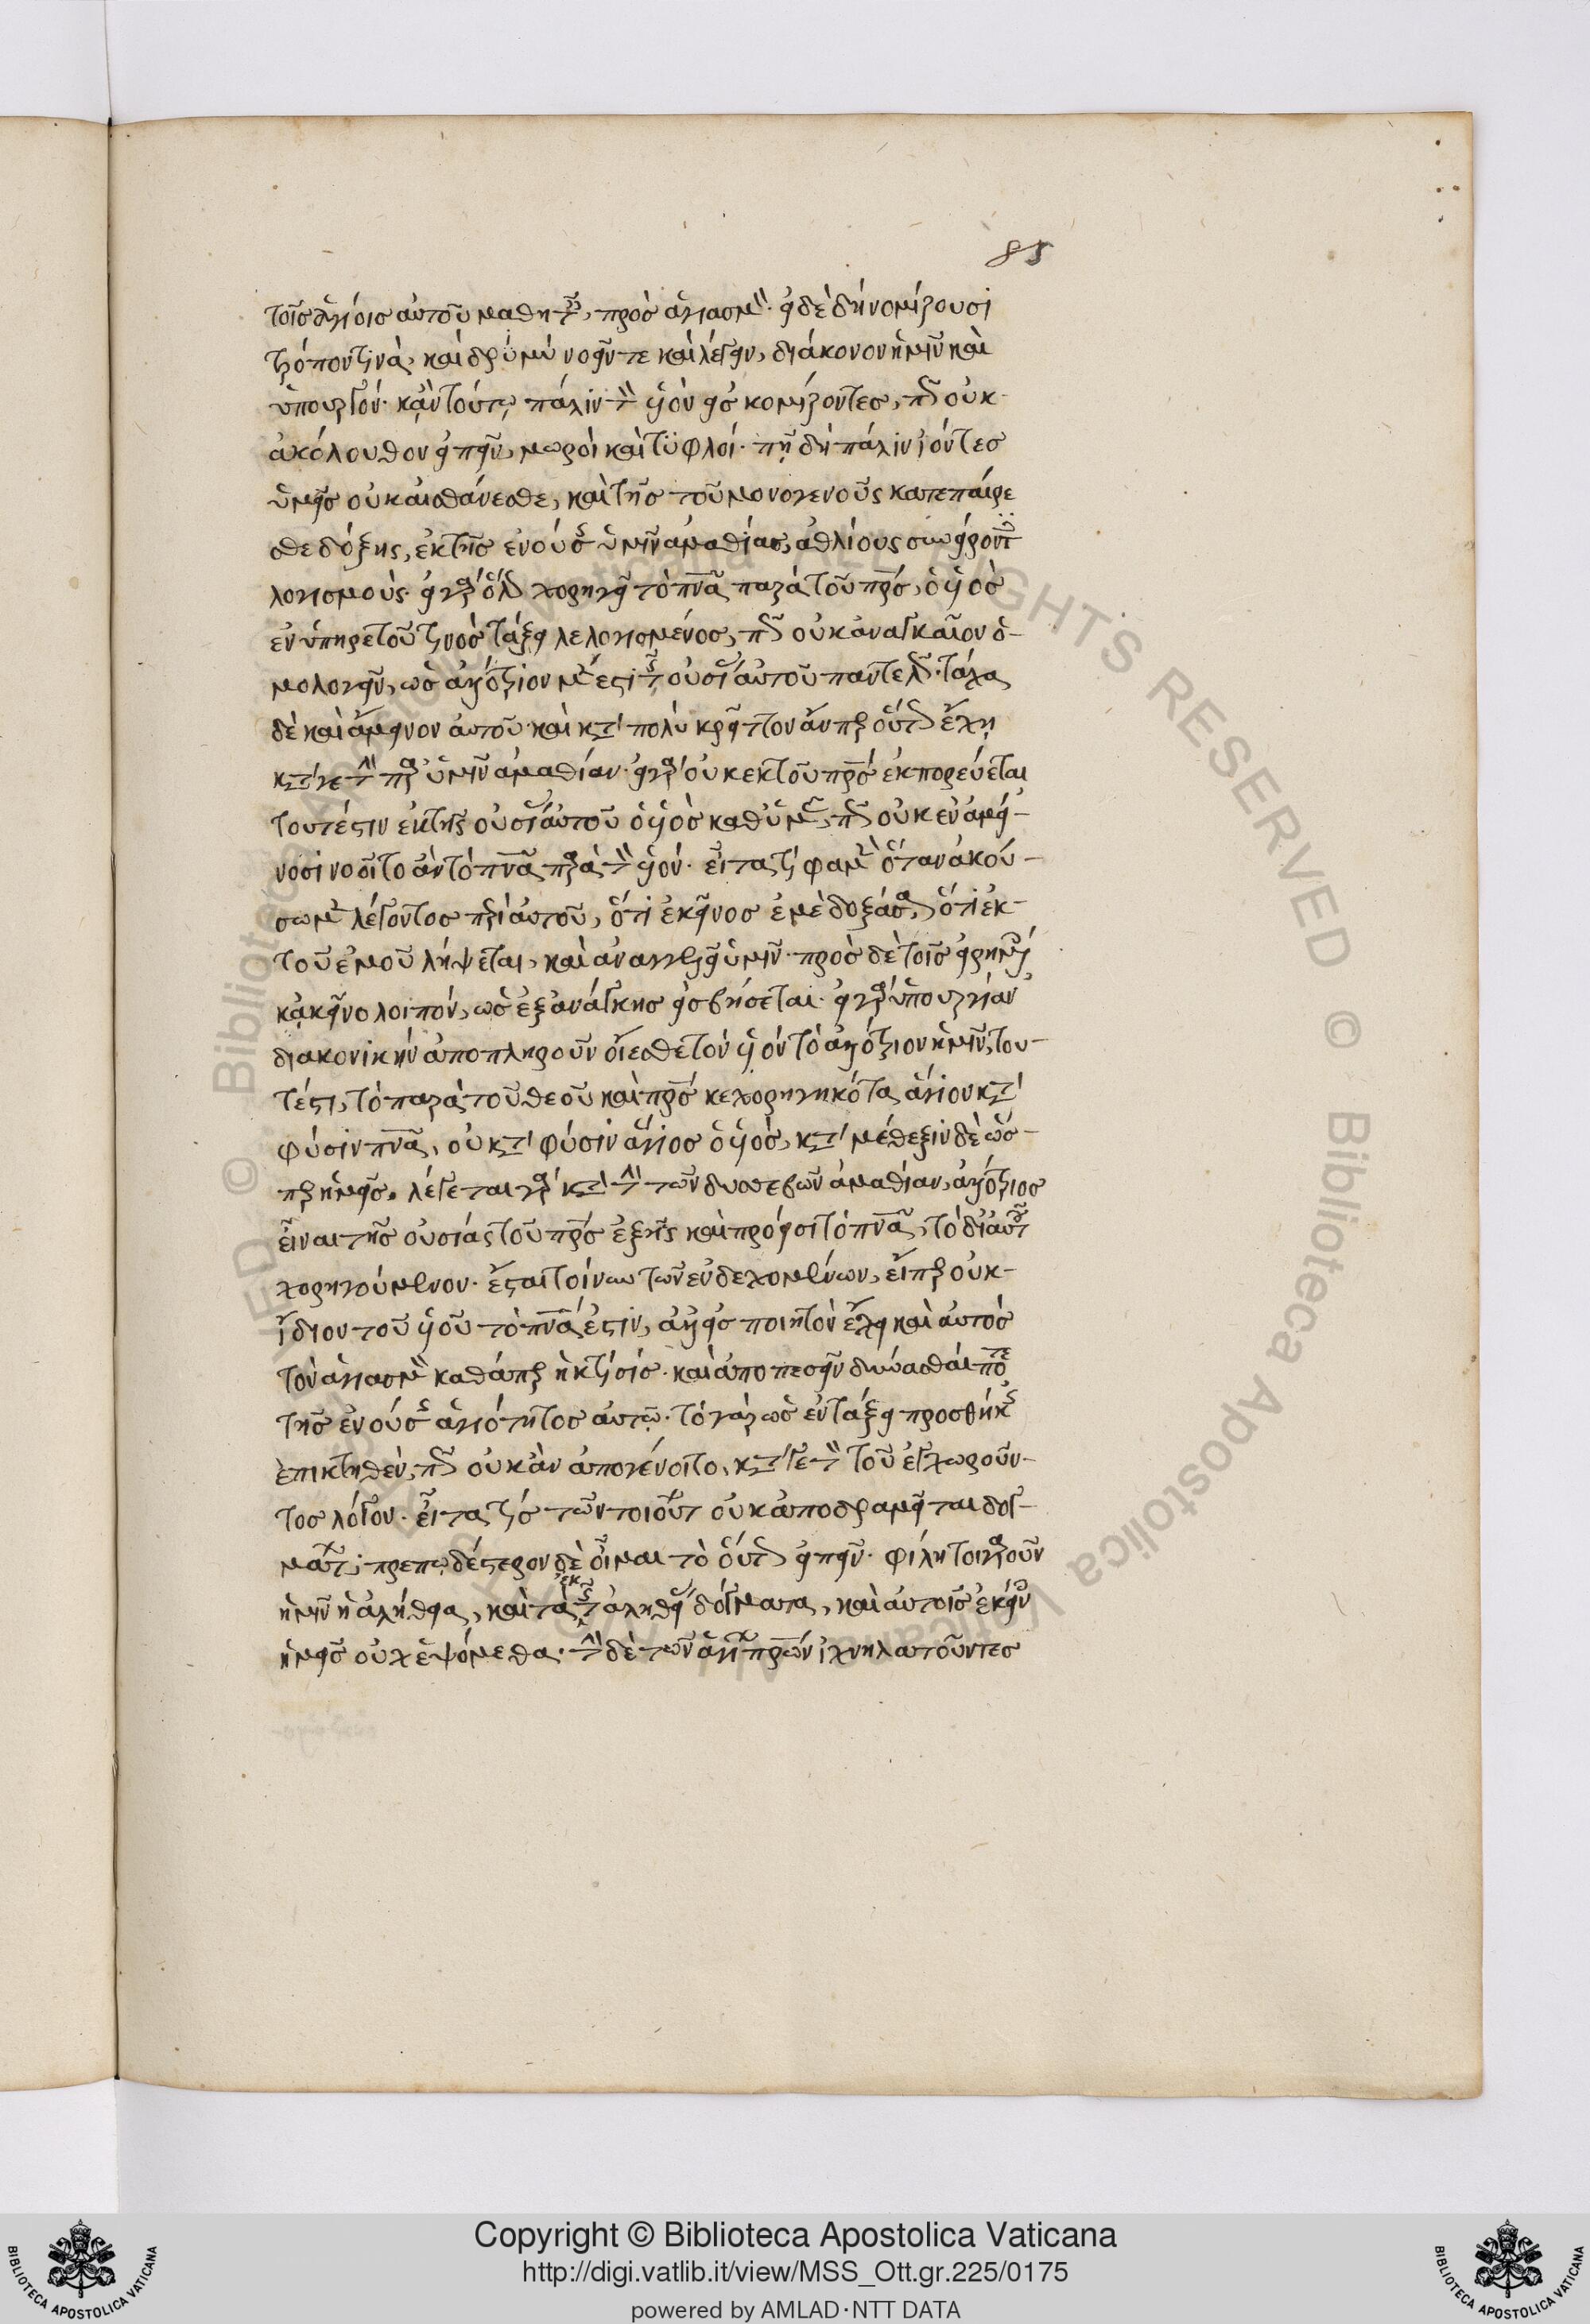 85
τοῖς ἁγίοις αὐτοῦ μαθηταῖς, πρὸς ἁγιασμόν. εἰ δὲ δὴ νομίζουσι
τρόπον τινὰ, καὶ νοεῖν τε καὶ λέγειν, διάκονον ἡμῖν καὶ
ὑπουργόν. κἀν τούτῳ πάλιν τὸν υἱὸν εἰσκομίζοντες, πῶς οὐκ
ἀκόλουθον εἰπεῖν, μωροὶ καὶ τυφλοί. πῆ δὴ πάλιν ἰόντες
ὑμεῖς οὐκ αἰσθάνεσθε, καὶ τῆς τοῦ μονογενοῦς κατεπαίρε
σθε δόξης, ἐκ τῆς ἐνούσης ὑμῖν ἀμαθίας, ἀθλίους συμφέροντες
λογισμούς. εἰ γὰρ ὅλως χορηγεῖ τὸ πνα παρὰ τοῦ πρς, ὁ υἱὸς
ἐν ὑπηρέτου τινὸς τάξει λελογισμένος, πῶς οὐκ ἀναγκαῖον ὁ-
μολογεῖν, ὡς ἀλλότριον μέν ἐστι τῆς οὐσίας αὐτοῦ παντελῶς. τάχα
δὲ καὶ ἄμεινον αὐτοῦ καὶ κατὰ πολὺ κρεῖττον ἄνπερ οὕτως ἔχῃ
κατά γε τὴν παρ' ὑμῖν ἀμαθίαν. εἰ γὰρ οὐκ ἐκ τοῦ πρς ἐκπορεύεται
τουτέστιν ἐκ τῆς οὐσίας αὐτοῦ ὁ υἱὸς καθ' ὑμᾶς, πῶς οὐκ ἐν ἀμεί-
νοσι νοοῖτο ἂν τὸ πνα παρὰ τὸν υἱόν. εἶτα τί φαμὲν ὅταν ἀκού-
σωμεν λέγοντος περὶ αὐτοῦ, ὅτι ἐκεῖνος ἐμὲ δοξάσει, ὅτι ἐκ
τοῦ ἐμοῦ λήψεται, καὶ ἀναγγελεῖ ὑμῖν. πρὸς δὲ τοῖς εἰρημένοις
κἀκεῖνο λοιπόν, ὡς ἐξ ἀνάγκης εἰσβήσεται. εἰ γὰρ ὑπουργίαν
διακονικὴν ἀποπληροῦν οἴεσθε τὸν υἱὸν τὸ ἀλλότριον ἡμῖν, του-
τέστι, τὸ παρὰ τοῦ θεοῦ καὶ πρς κεχορηγηκότα ἅγιον κατὰ
φύσιν πνα, οὐ κατὰ φύσιν ἅγιος ὁ υἱός, κατὰ μέθεξιν δὲ ὥσ-
περ ἡμεῖς. λέγεται γὰρ κατὰ τὴν τῶν δυσσεβῶν ἀμαθίαν, ἀλλότριος
εἶναι τῆς οὐσίας τοῦ πρς ἐξ ἧς καὶ πρόεισι τὸ πνα, τὸ δι' αὐτοῦ
χορηγούμενον. ἔσται τοίνυν τῶν ἐνδεχομένων, εἴπερ οὐκ
ἴδιον τοῦ υἱοῦ τὸ πνα ἐστιν, ἀλλ' εἰσποιητὸν ἔχει καὶ αὐτὸς
τὸν ἁγιασμὸν καθάπερ ἡ κτίσις. καὶ ἀποπεσεῖν δύνασθαί ποτε
τῆς ἐνούσης ἁγιότητος αὐτῷ. τὸ γὰρ ὡς ἐν τάξει προσθήκης
ἐπικτηθὲν, πῶς οὐκ ἂν ἀπογένοιτο, κατά γε τὸν τοῦ ἐγχωροῦν-
τος λόγον. εἶτα τίς τῶν τοιούτων οὐκ ἀποδραμεῖται δογ-
μάτων; πρεπωδέστερον δὲ οἶμαι τὸ οὕτως εἰπεῖν. φίλη τοιγαροῦν
ἡμῖν ἡ ἀλήθεια, καὶ τὰ ἐκ τῆς ἀληθείας δόγματα, καὶ αὐτοῖς ἐκείνοις
ἡμεῖς οὐχ ἑψόμεθα. τὴν δὲ τῶν ἁγίων πρων ἰχνηλατοῦντες
Copyright © Biblioteca Apostolica Vaticana
http://digi.vatlib.it/view/MSS_Ott.gr.225/0175
powered by AMLAD·NTT DATA